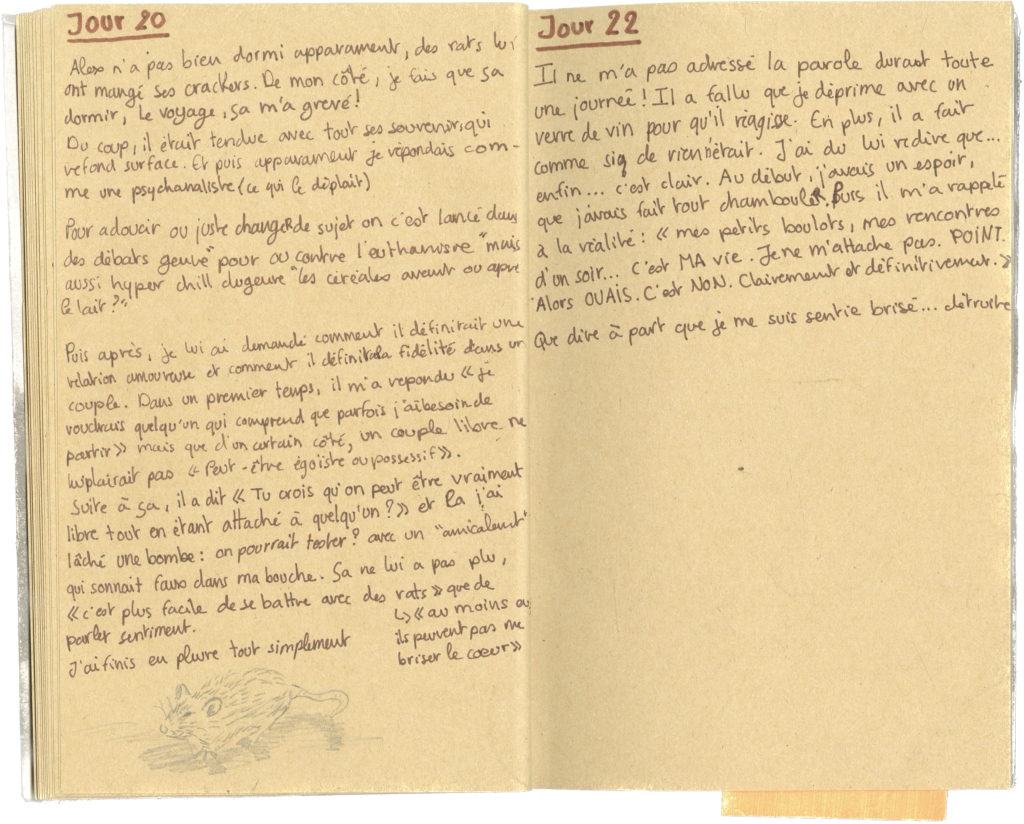 Jour 20
Alex n'a pas bien dormi apparament, des rats lui
ont mangé ses crackers. De mon côté, je fais que ça
dormir, le voyage, ça m'a grevé!
Du coup, il était tendue avec tout ses souvenirs qui
refond surface. Et puis apparament je répondais com-
me une psychanaliste (ce qui le déplait)
Pour adoucir ou juste changer de sujet on c'est lancé dans
des débats genre "pour ou contre l'euthanisre" mais
aussi hyper chill du genre "les céréales avant ou apre
le lait?"
Puis après, je lui ai demandé comment il définirait une
relation amoureuse et comment il définit la fidélité dans un
couple. Dans un premier temps, il m'a repondu « je
voudrais quelqu'un qui comprend que parfois j'ai besoin de
partir » mais que d'un certain côté, un couple libre ne
lui plairait pas « Peut-être égoïste ou possessif ».
Suite à ça, il a dit « Tu crois qu'on peut être vraiment
libre tout en étant attaché à quelqu'un? » et la j'ai
lâché une bombe: on pourrait tester? avec un "amicalement"
qui sonnait faux dans ma bouche. Ça ne lui a pas plu,
« c'est plus facile de se battre avec des rats » que de
parler sentiment.
↳ « au moins eu
ils peuvent pas me
briser le cœur »
J'ai finis en pleure tout simplement
Jour 22
Il ne m'a pas adressé la parole durant toute
une journée! Il a fallu que je déprime avec un
verre de vin pour qu'il réagisse. En plus, il a fait
comme siq de rien n'était. J'ai du lui redire que...
enfin... c'est clair. Au début, j'avais un espoir,
que j'avais fait tout chambouler. Puis il m'a rappelé
à la réalité: « mes petits boulots, mes rencontres
d'un soir... C'est MA vie. Je ne m'attache pas. POINT.
Alors OUAIS. C'est NON. Clairement et définitivement. »
Que dire à part que je me suis sentie brisé... détruite